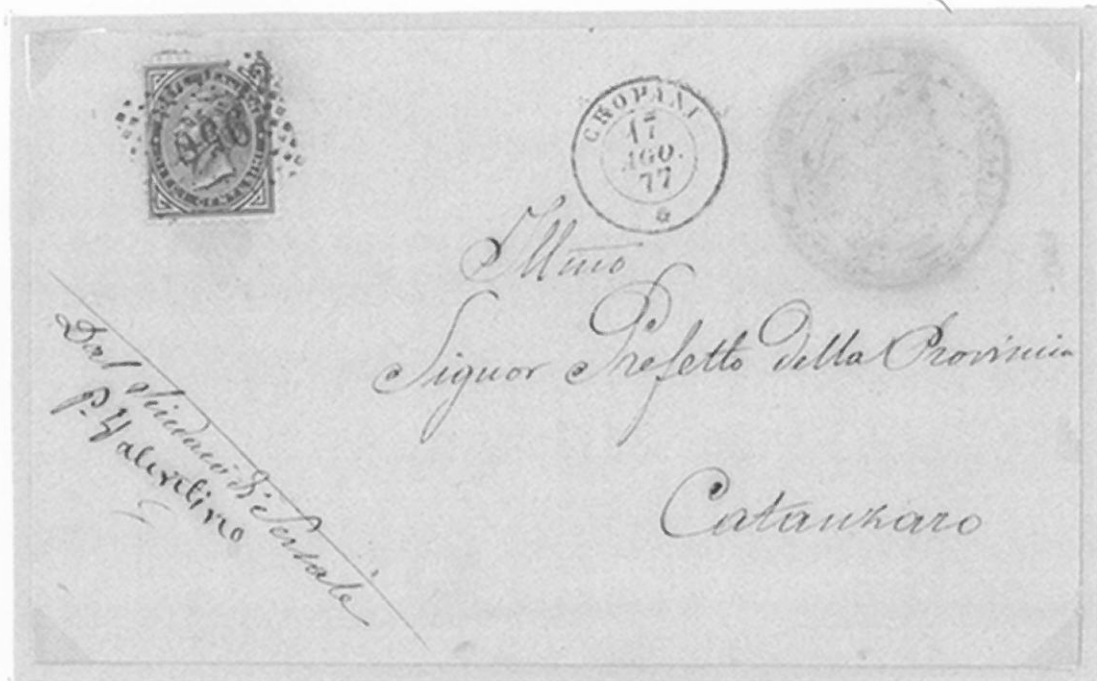 CROPANI
17
AGO.
77
Illmo
Signor Prefetto della Provincia
Catanzaro
Dal Sindaco di Sersale
P. Valentino
DIECI CENTESIMI